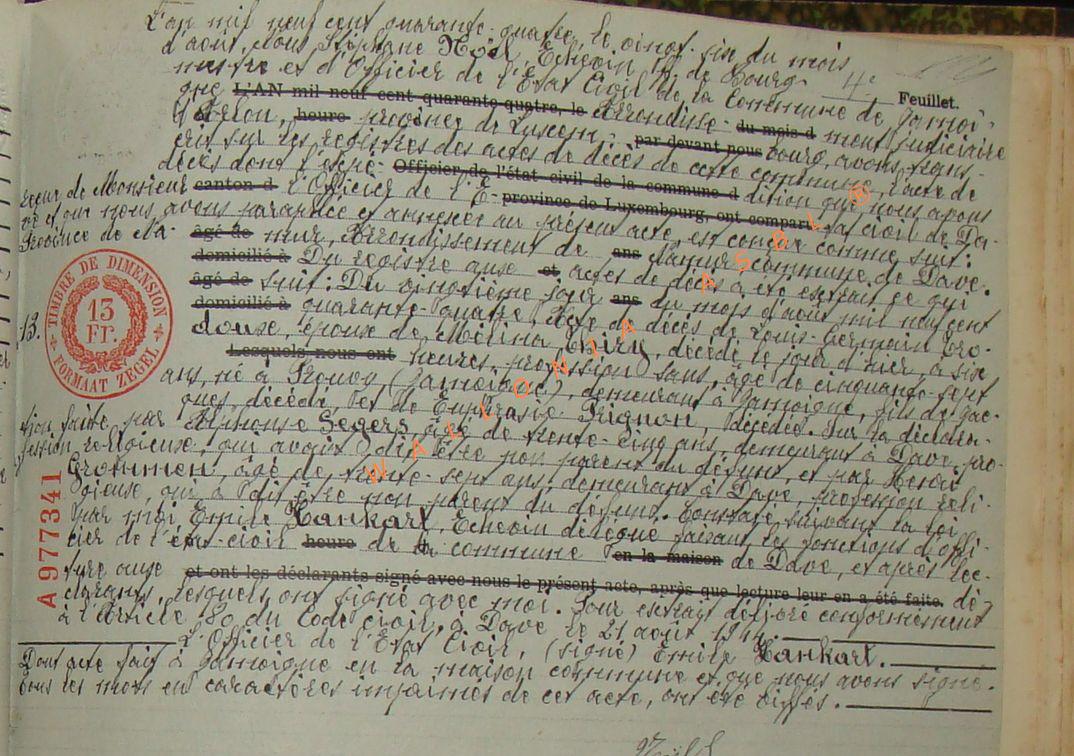 L'an mil neuf cent quarante-quatre, le vingt-six du mois
d'août, Nous Stéphane Noël, Echevin ff. de Bourg-
mestre et d'Officier de l'Etat Civil de la Commune de Jamoi-
4e Feuillet.
gne L'AN mil neuf cent quarante-quatre, le Arrondisse- du mois d ment judiciaire
d'Arlon, heure province de Luxem- par devant nous bourg, avons trans-
crit sur les registres des actes de décès de cette commune, l'acte de
décès dont l'expé- Officier de l'état civil de la commune d dition que nous avons
reçue de Monsieur canton d l'Officier de l'E- province de Luxembourg, ont comparu tat civil de Da-
ve et que nous avons paraphée et annexée au présent acte, est conçue comme suit:
Province de Na- âgé de mur, Arrondissement de ans Namur, commune de Dave.
domicilié à Du registre aux et actes de décès a été extrait ce qui
âgé de suit: Du vingtième jour ans du mois d'août mil neuf cent
domicilié à quarante-quatre, Acte de décès de Louis-Germain
13. douze, époux de Mélina Thiry, décédé le jour d'hier, à six
Lesquels nous ont heures, profession sans, âgé de cinquante-sept
ans, né à Prouvy (Jamoigne), demeurant à Jamoigne, fils de Jac-
ques, décédé, et de Euphrasie Pignon, décédée. Sur la déclara-
tion faite par Alphonse Segers, âgé de trente-cinq ans, demeurant à Dave, pro-
fession religieuse, qui a dit être non parent du défunt, et par
âgé de trente-sept ans, demeurant à Dave, profession reli-
gieuse, qui a dit être non parent du défunt. Constaté suivant la loi
par moi Emile Hankart, Echevin délégué faisant les fonctions d'offi-
cier de l'état-civil heure de la commune en la maison de Dave, et après lec-
ture aux et ont les déclarants signé avec nous le présent acte, après que lecture leur en a été faite. dé-
clarants, lesquels ont signé avec moi. Pour extrait délivré conformément
à l'Article 80 du Code civil, à Dave le 21 août 1944.
L'Officier de l'Etat Civil, (signé) Emile Hankart.
Dont acte fait à Jamoigne en la maison commune et que nous avons signé.
Tous les mots en caractères imprimés de cet acte, ont été biffés.
TIMBRE DE DIMENSION
13
Fr.
FORMAAT ZEGEL
A977341
WALLONIA ASBL ®